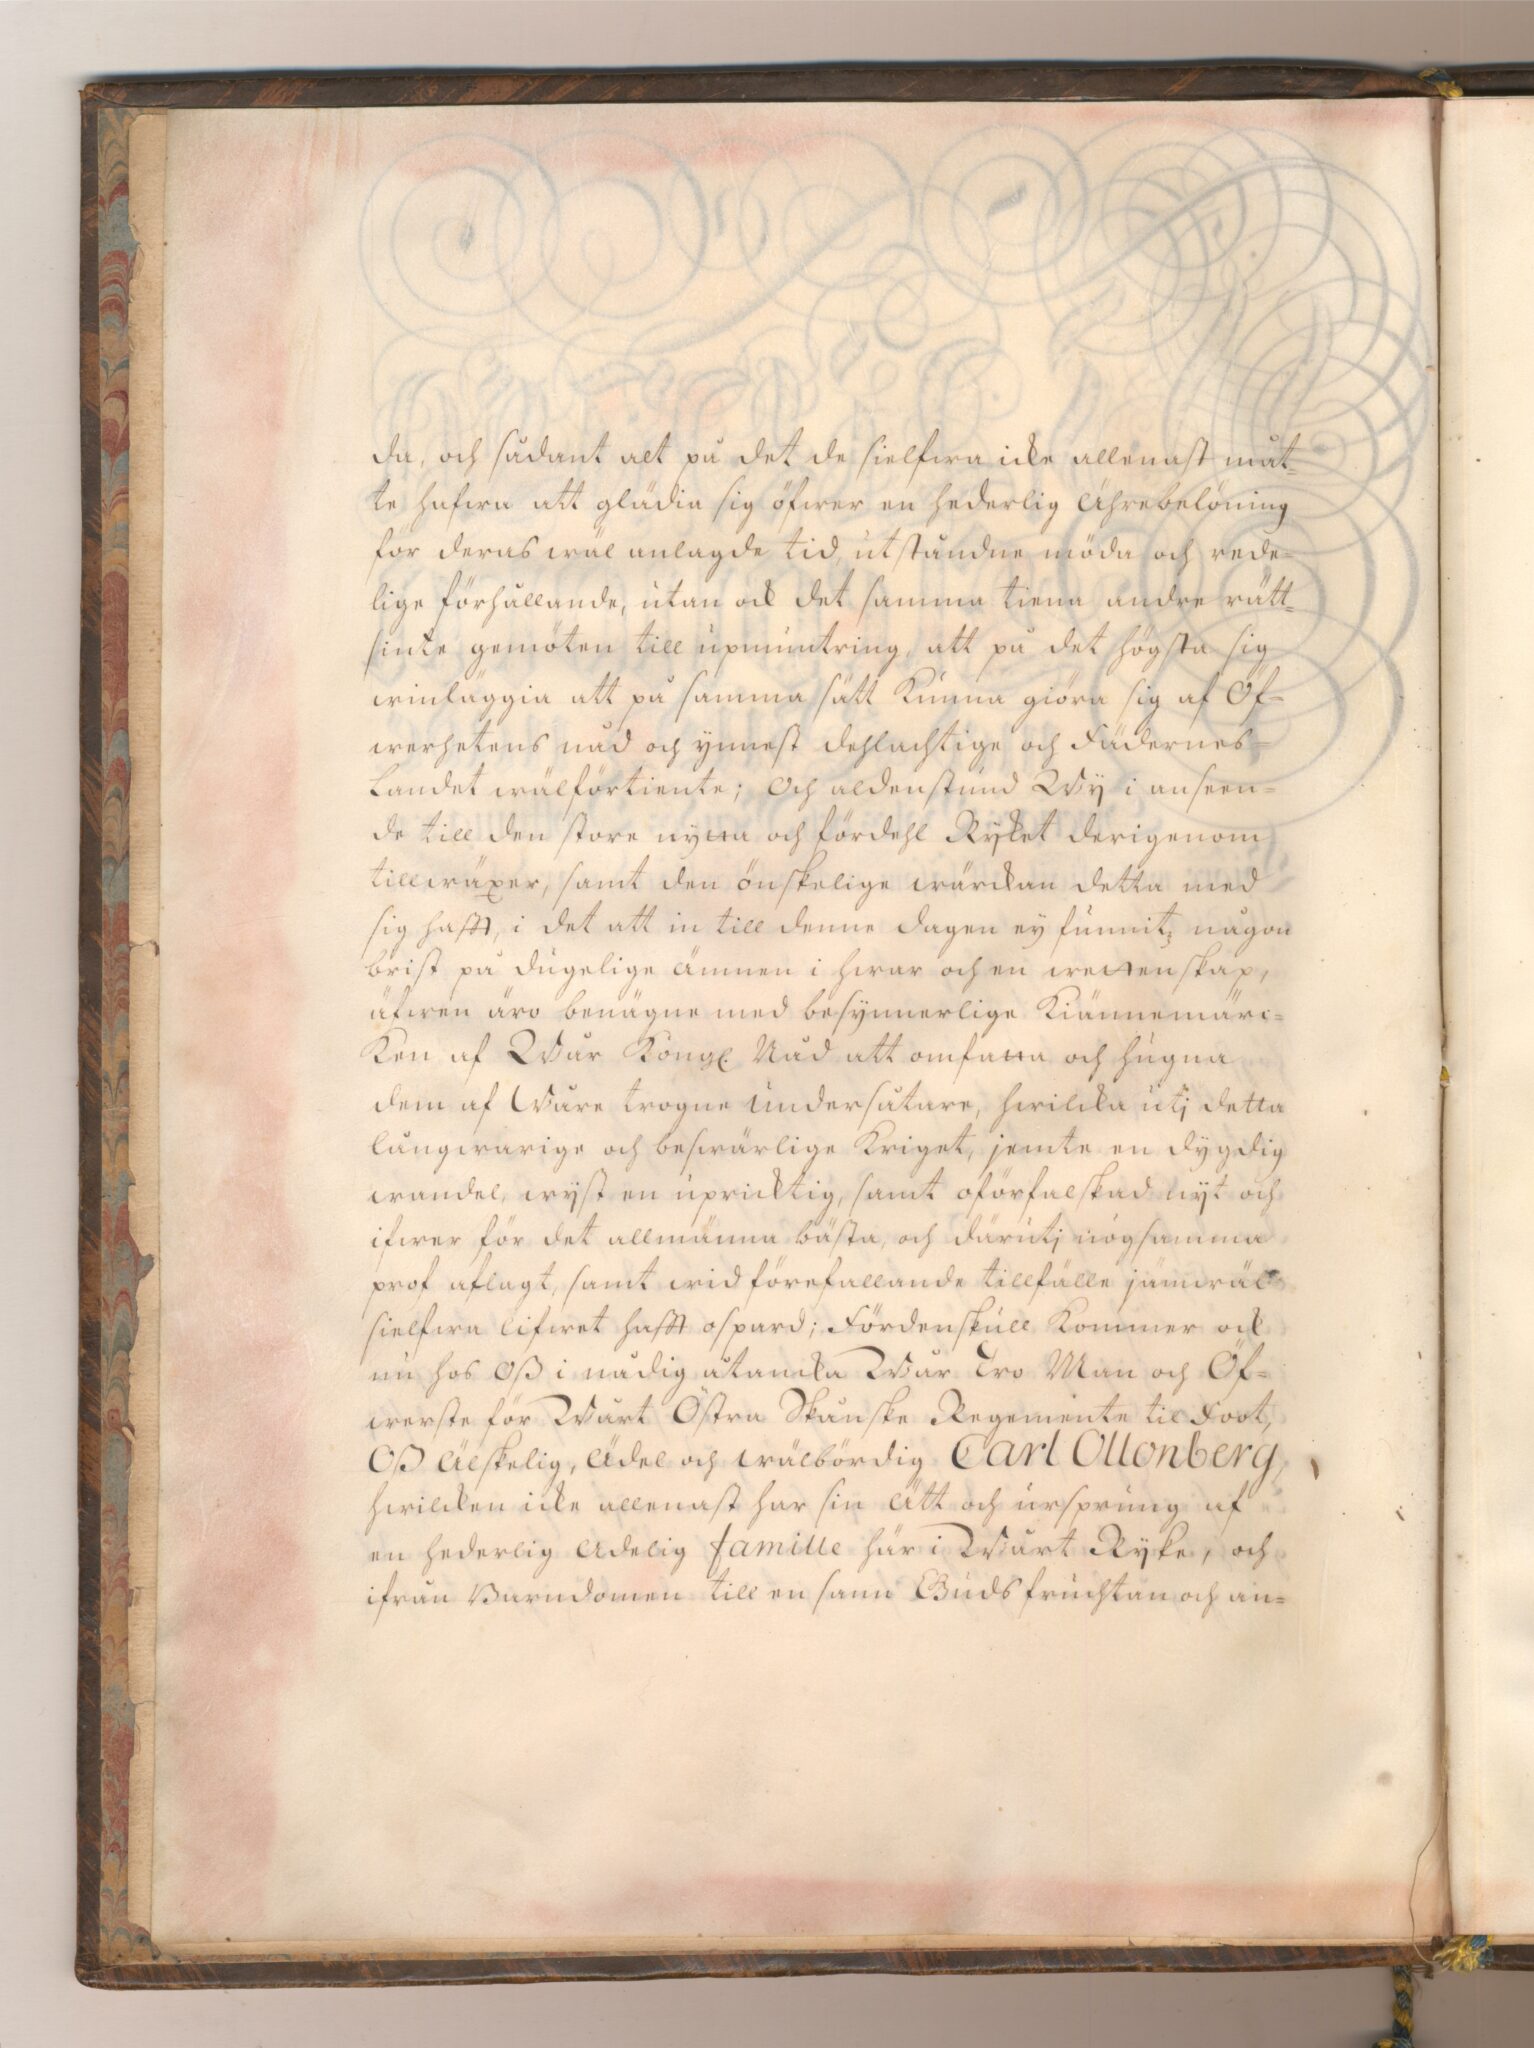 da, och sådant alt på det de sielfwa icke allenast måt-
te hafwa att glädia sig öfwer en hederlig Ährebelöning
för deras wäl anlagde tid, utståndne möda och rede-
lige förhållande, utan ock det samma tiena andre rätt-
sinte gemöten till upmuntring, att på det högsta sig
winläggia att på samma sätt Kunna giöra sig af Öf-
werhetens nåd och ynnest dehlachtige och Fädernes-
Landet wälförtiente; Och aldenstund Wy i anseen-
de till den store nytta och fördehl Ryket derigenom
tillwäxer, samt den önskelige wärckan detta med
sig hafft, i det att in till denne dagen ey funnitz någon
brist på dugelige ämnen i hwar och en wettenskap,
äfwen äro benägne med besynnerlige Kiännemärc-
Ken af Wår Kongl. Nåd att omfatta och hugna
dem af Wåre trogne Undersåtare, hwilcka utj detta
långwarige och beswärlige Kriget, jemte en dygdig
wandel, wyst en upricktig, samt oförfalskad nyt och
ifwer för det allmänna bästa, och därutj nogsamma
prof aflagt, samt wid förefallande tillfälle jämwäl
sielfwa lifwet hafft ospard; Fördenskull Kommer ock
nu hos Oß i nådig åtancka Wår Tro Man och Öf-
werste för Wårt Östra Skånske Regemente til Foot,
Oß Älskelig, Ädel och wälbördig Carl Ollonberg,
hwilcken icke allenast har sin Ätt och ursprung af
en hederlig Adelig famille här i Wårt Ryke, och
ifrån Barndomen till en sann Gudsfruchtan och an-